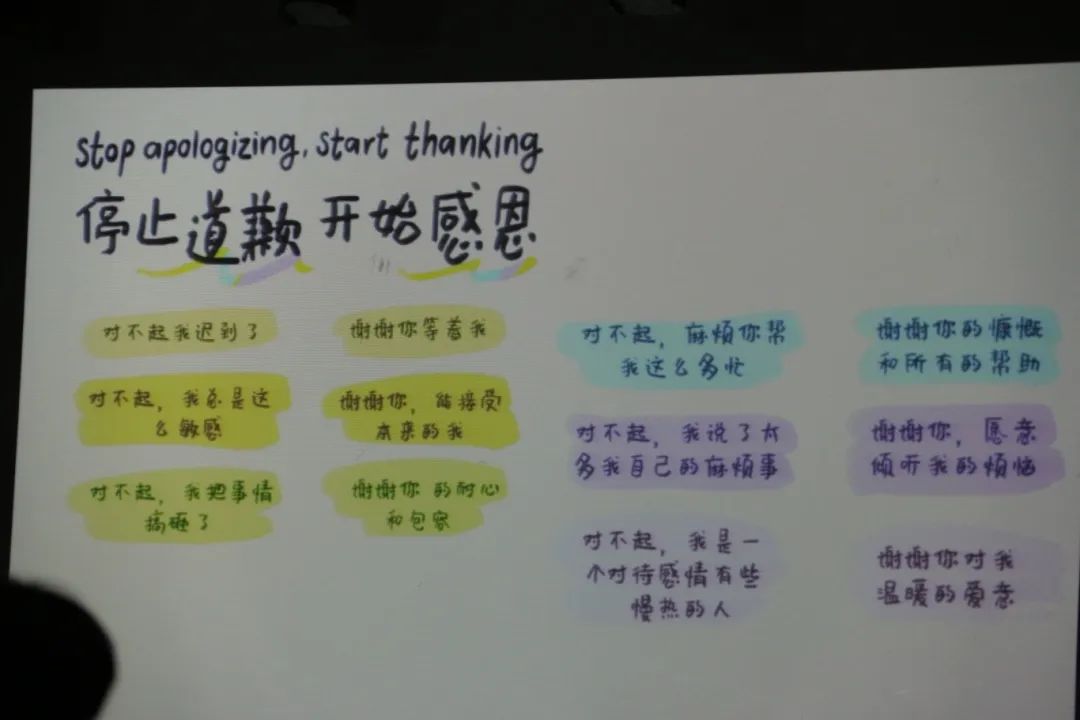 stop apologizing, start thanking
停止道歉 开始感恩
对不起我迟到了
谢谢你等着我
对不起，我总是这
么敏感
谢谢你，能接受
本来的我
对不起，我把事情
搞砸了
谢谢你 的耐心
和包容
对不起，麻烦你帮
我这么多忙
谢谢你的慷慨
和所有的帮助
对不起，我说了太
多我自己的麻烦事
谢谢你，愿意
倾听我的烦恼
对不起，我是一
个对待感情有些
慢热的人
谢谢你对我
温暖的爱意